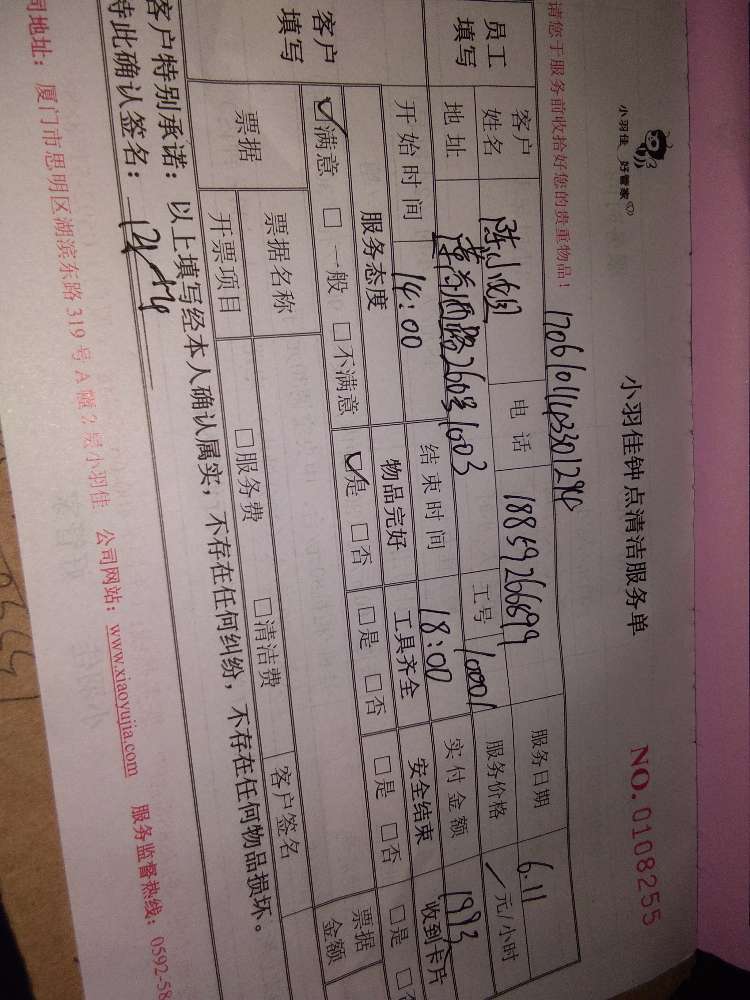 小羽佳 好管家
小羽佳钟点清洁服务单
NO. 0108255
请您于服务前收拾好您的贵重物品！
员工填写 客户姓名 陈小姐 电话 18859266699 服务日期 6.11
地址 260号1003 工号 10001 服务价格 / 元/小时
开始时间 14:00 结束时间 18:00 实付金额 1993
客户填写 服务态度 物品完好 工具齐全 安全结束 收到卡片
☑满意 □一般 □不满意 ☑是 □否 □是 □否 □是 □否 □是
票据 票据名称 客户签名 票据金额
开票项目 □服务费 □清洁费
客户特别承诺：以上填写经本人确认属实，不存在任何纠纷，不存在任何物品损坏。
特此确认签名：
司地址：厦门市思明区湖滨东路319号A幢2层小羽佳 公司网站：www.xiaoyujia.com 服务监督热线：0592-58